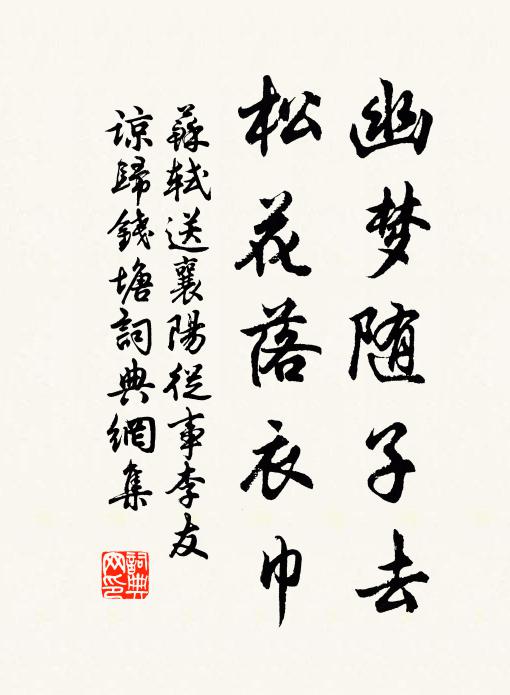 幽梦随子去
松花落衣巾
蘇軾送襄陽從事李友
諒歸錢塘詞典網集
詞典
网印